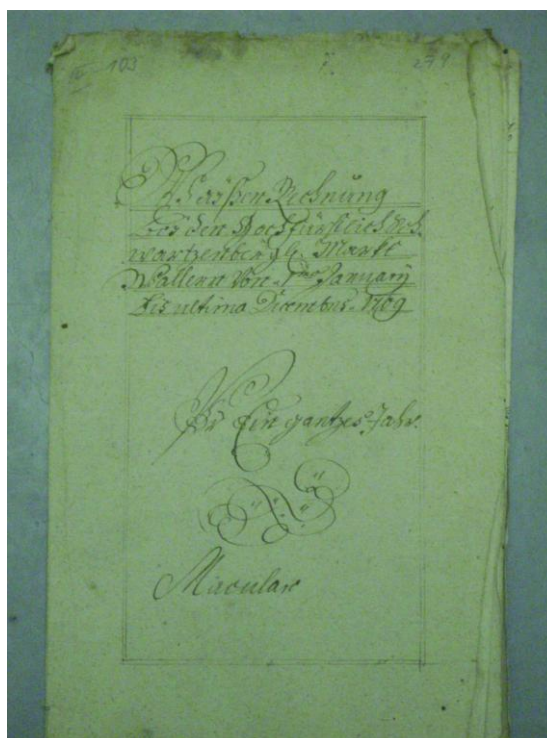 103 279
Waißen Rechnung
Beӱ den Hochfürstlich Sch
wartzenberg: Markt
Wallern Von 1ten Januarӱ
bis ultima Decembris 1709
Pr Ein gantzes Jahr.
Macular